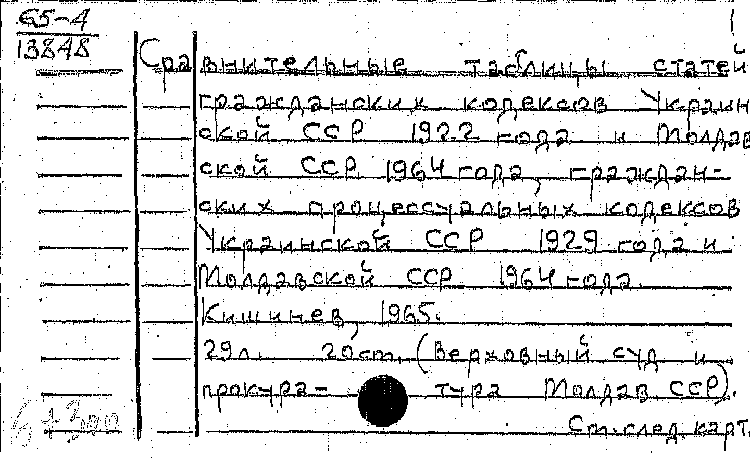 65-4
13848
1
Сравнительные таблицы статей
гражданских кодексов Украин
ской ССР 1922 года и Молдав
ской ССР 1964 года, граждан-
ских процессуальных кодексов
Украинской ССР 1929 года и
Молдавской ССР 1964 года.
Кишинев, 1965.
29л. 20см. (Верховный суд и
прокура- тура Молдав ССР).
См. след. карт.